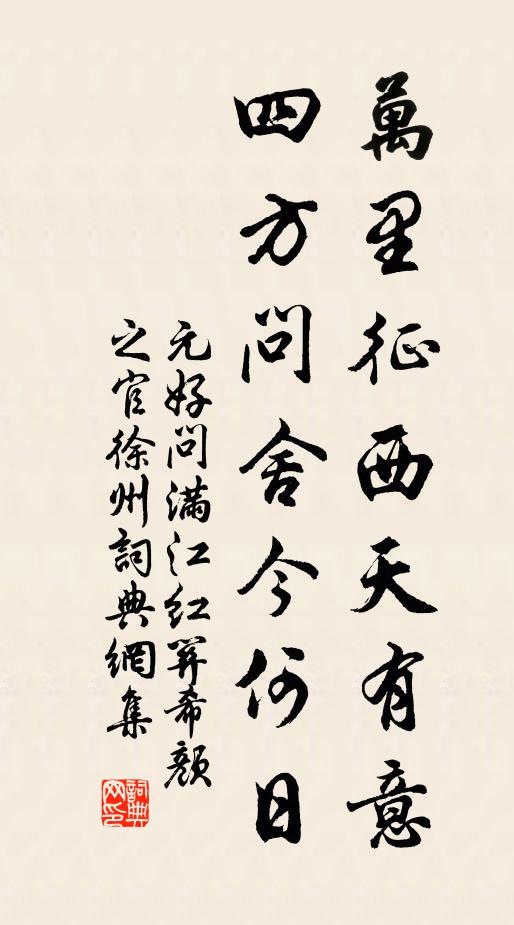 萬里征西天有意
四方問舍今何日
元好問滿江紅希顏
之官徐州詞典網集
詞典
网印